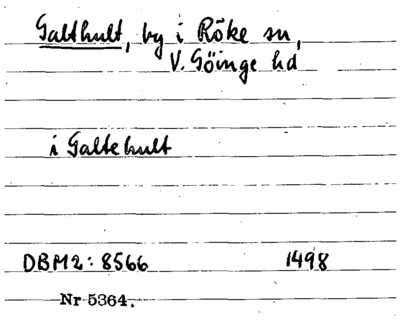 Galthult, by i Röke sn,
V. Göinge hd
i Galtehult
DBM2: 8566 1498
Nr 5364.